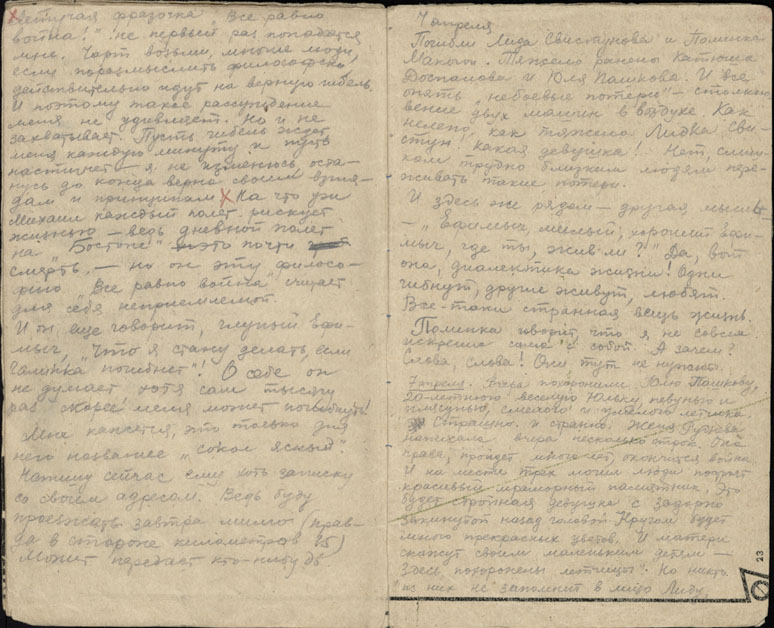 Летучая фразочка „Все равно
война!“ не первый раз попадается
мне. Чорт возьми, многие люди,
если поразмыслить философски,
действительно идут на верную гибель.
И поэтому такое рассуждение
меня не удивляет. Но и не
захватывает. Пусть гибель ждет
меня каждую минуту и пусть
настигнет – я не изменюсь, оста-
нусь до конца верна своим взгля-
дам и принципам. На что уж
Михаил каждый полет рискует
жизнью – ведь дневной полет
на „Бостоне“ это почти
смерть, – но он эту филосо-
фию „Все равно война“ считает
для себя неприемлемой.
И он еще говорит, глупый Ефи-
мыч, „Что я стану делать, если
Галинка погибнет“! О себе он
не думает хотя сам тысячу
раз скорее меня может погибнуть!
Мне кажется, это только для
него название „сокол ясный“.
Напишу сейчас ему хоть записку
со своим адресом. Ведь буду
проезжать завтра мимо (прав-
да в стороне километров 25)
Может передаст кто-нибудь
апреля
Погибли Лида Свистунова и Полинка
Макагон. Тяжело ранены Катюша
Доспанова и Юля Пашкова. И все
опять „небоевые потери“ – столкно-
вение двух машин в воздухе. Как
нелепо, как тяжело. Лидка Сви-
стун! Какая девушка! Нет, слиш-
ком трудно близким людям пере-
живать такие потери.
И здесь же рядом – другая мысль
– „Ефимыч, милый, хороший Ефи-
мыч, где ты, жив ли?“ Да, вот
она, диалектика жизни! Одни
гибнут, другие живут, любят.
Все-таки странная вещь жизнь.
Полинка говорит, что я не совсем
искренна сама с собой. А зачем?
Слова, слова! Они тут не нужны.
7 апреля. Вчера похоронили Юлю Пашкову,
20-летнюю веселую Юльку, певунью и
плясунью, смелого и умелого летчика.
Страшно и странно. Женя Руднева
написала вчера несколько строк. Она
права, пройдет много лет, окончится война
И на месте трех могил люди поставят
красивый мраморный памятник. Это
будет стройная девушка с задорно
закинутой назад головой. Кругом будет
много прекрасных цветов. И матери
скажут своим маленьким детям –
Здесь похоронены летчицы“. Но никто
из них не запомнит в лицо Лиду,
23